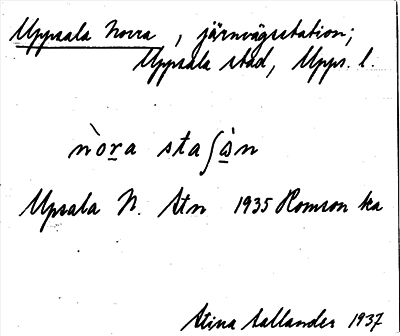 Uppsala Norra, järnvägsstation;
Uppsala stad, Upps. l.
nòra staʃòn
Upsala N. Stn 1935 Romson ka
Stina Sallander 1937